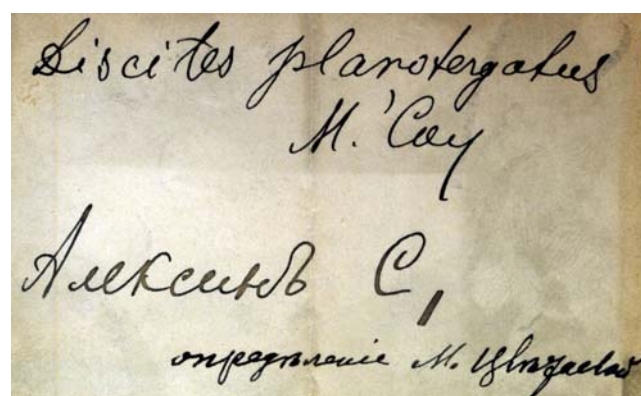 Discites planotergatus
M.'Coy
Алексинъ C₁
опредѣленіе М. Цвѣтаевой